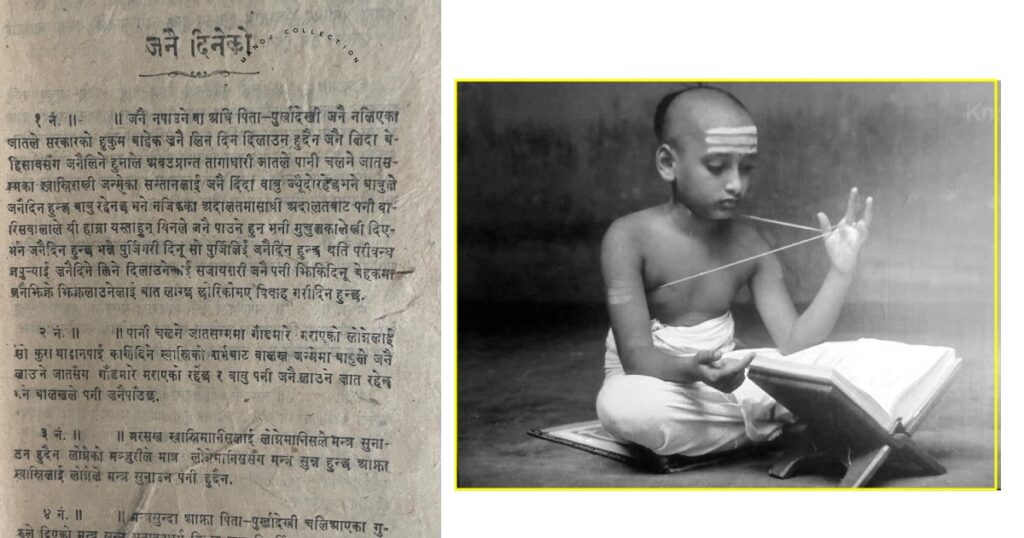 जनै दिनेको
MANOJ COLLECTION
१ नं. ॥ ॥ जनै नपाउने वा अघि पिता-पुर्खादेखी जनै नलिएका
जातले सरकारको हुकुम बाहेक जनै लिन दिन दिलाउन हुदैन जनै लिदा बे-
हिसावसँग जनैलिने हुनाले अवउप्रान्त तागाधारी जातले पानी चलने जातस-
म्मका स्वास्निराखी जन्मेका सन्तानलाई जनै दिंदा वावु ज्यूदोरहेछभने वावुले
जनैदिन हुन्छ वावु रहेनछ भने नजिकका अदालतमासाधी अदालतबाट पनी वा-
रिसवालाले यी हाम्रा यस्ताहुन् यिनले जनै पाउने हुन भनी मुचुल्कालेखी दिए-
भने जनैदिन हुन्छ भन्ने पुर्जिगरी दिनू सो पुर्जिलिई जनैदिन हुन्छ यति परीवन्ध
नपुर्‍याई जनैदिने लिने दिलाउनेलाई सजायगरी जनै पनी झिकिदिनू बेहकमा
जनैझिक्ने झिक्नलाउनेलाई बात लाग्छ छोरिकोभए विवाह गरीदिन हुन्छ.
२ नं. ॥ ॥ पानी चलने जातसम्ममा गाँडमारे मराएको लोग्नेलाई
सो कुरा थाहानपाई कन्निदिने स्वास्निका गर्भबाट वालख जन्मेमा वावुले जनै
लाउने जातसँग गाँडमारे मराएको रहेछ र वावु पनी जनै लाउने जात रहेछ
भने वालखले पनी जनैपाउँछ.
३ नं. ॥ ॥ अरूसख स्वास्निमानिसलाई लोग्नेमानिसले मन्त्र सुना-
उन हुदैन लोग्नेको मञ्जुरीले मात्र लोग्नेमानिससँग मन्त्र सुन्न हुन्छ आफ्ना
स्वास्निलाई लोग्नेले मन्त्र सुनाउन पनी हुदैन.
४ नं. ॥ ॥ मन्त्रसुन्दा आफ्ना पिता-पुर्खादेखी चलिआएका गु-
रुले दिएको मन्त्र सुन्नु
Kno